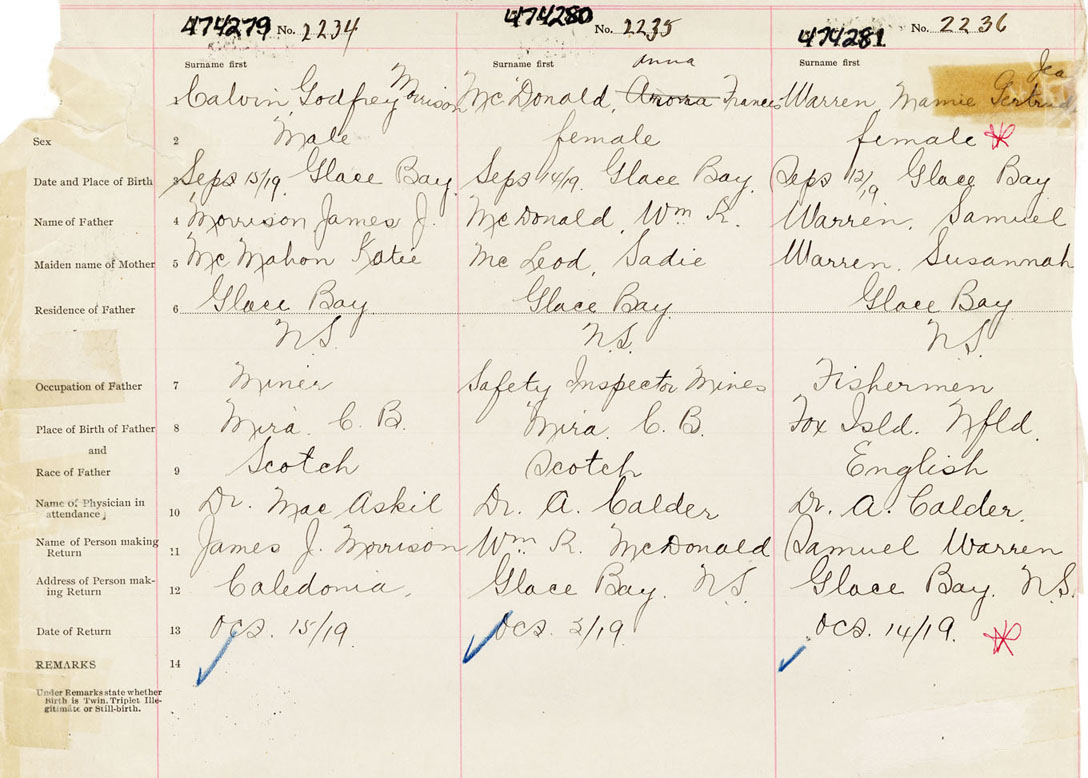 474279 No. 2234 474280 No. 2235 474281 No. 2236
Surname first Surname first Surname first
Anna
1 Calvin Godfrey Morrison McDonald, Frances Warren, Mamie
Sex 2 Male female female
Date and Place of Birth 3 Sept 15/19. Glace Bay. Sept 14/19. Glace Bay. Sept 12/19 Glace Bay
Name of Father 4 Morrison James J. McDonald, Wm R. Warren, Samuel
Maiden name of Mother 5 McMahon Katie McLeod, Sadie Warren, Susannah
Residence of Father 6 Glace Bay Glace Bay Glace Bay
N.S. N.S. N.S.
Occupation of Father 7 Miner Safety Inspector Mines Fishermen
Place of Birth of Father 8 Mira C. B. Mira. C. B. Fox Isld. Nfld.
and
Race of Father 9 Scotch Scotch English
Name of Physician in
attendance 10 Dr. MacAskil Dr. A. Calder Dr. A. Calder.
Name of Person making
Return 11 James J. Morrison Wm R. McDonald Samuel Warren
Address of Person mak-
ing Return 12 Caledonia, Glace Bay. N.S. Glace Bay. N.S.
Date of Return 13 Oct. 15/19 Oct. 3/19 Oct. 14/19.
REMARKS 14
Under Remarks state whether
Birth is Twin, Triplet Ille-
gitimate or Still-birth.